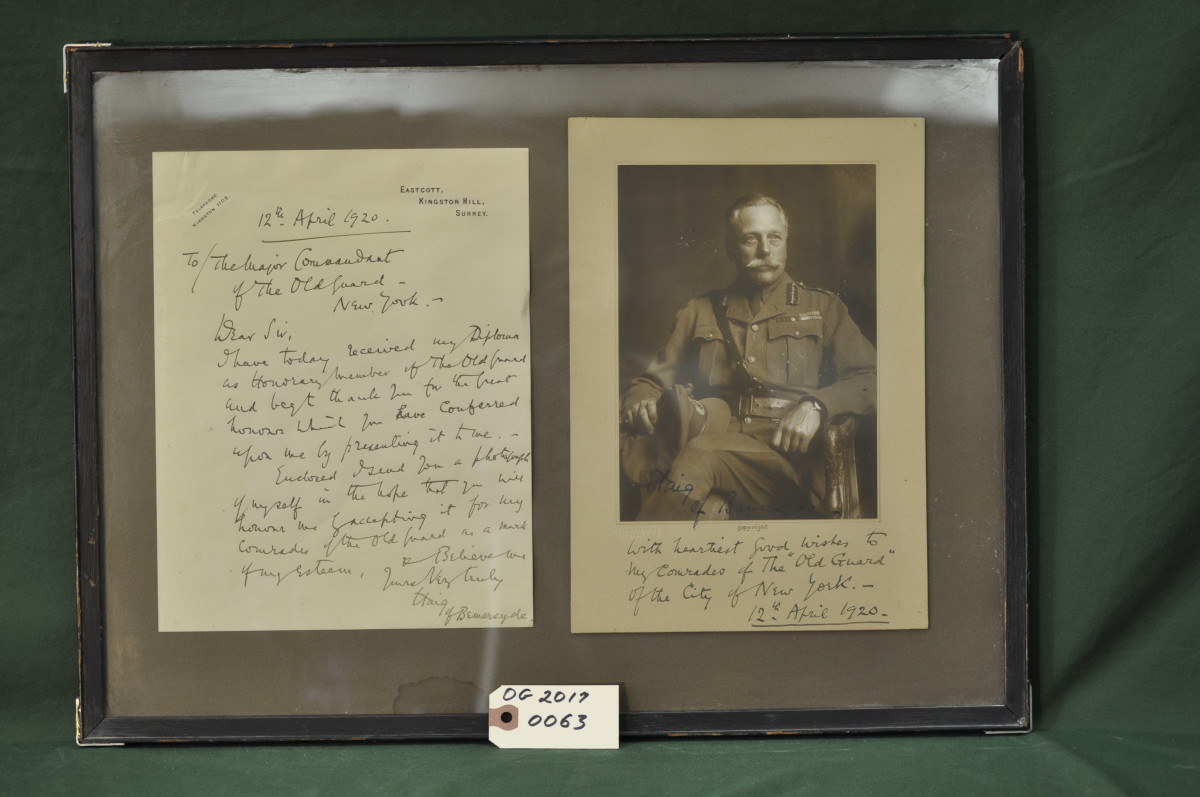 TELEPHONE
KINGSTON 1103.
EASTCOTT,
KINGSTON HILL,
SURREY.
12th April 1920.
To/ The Major Commandant
of the Old Guard –
New York. –
Dear Sir,
I have today received my Diploma
as Honorary Member of the Old Guard
and beg to thank you for the great
honour which you have conferred
upon me by presenting it to me. –
Enclosed I send you a photograph
of myself in the hope that you will
honour me by accepting it for my
Comrades of the Old Guard as a mark
of my esteem, & Believe me
Yours Very truly
Haig
of Bemersyde
Haig
of Bemersyde
copyright
With heartiest good wishes to
my Comrades of The "Old Guard"
of the City of New York. –
12th April 1920.
OG 2017
0063